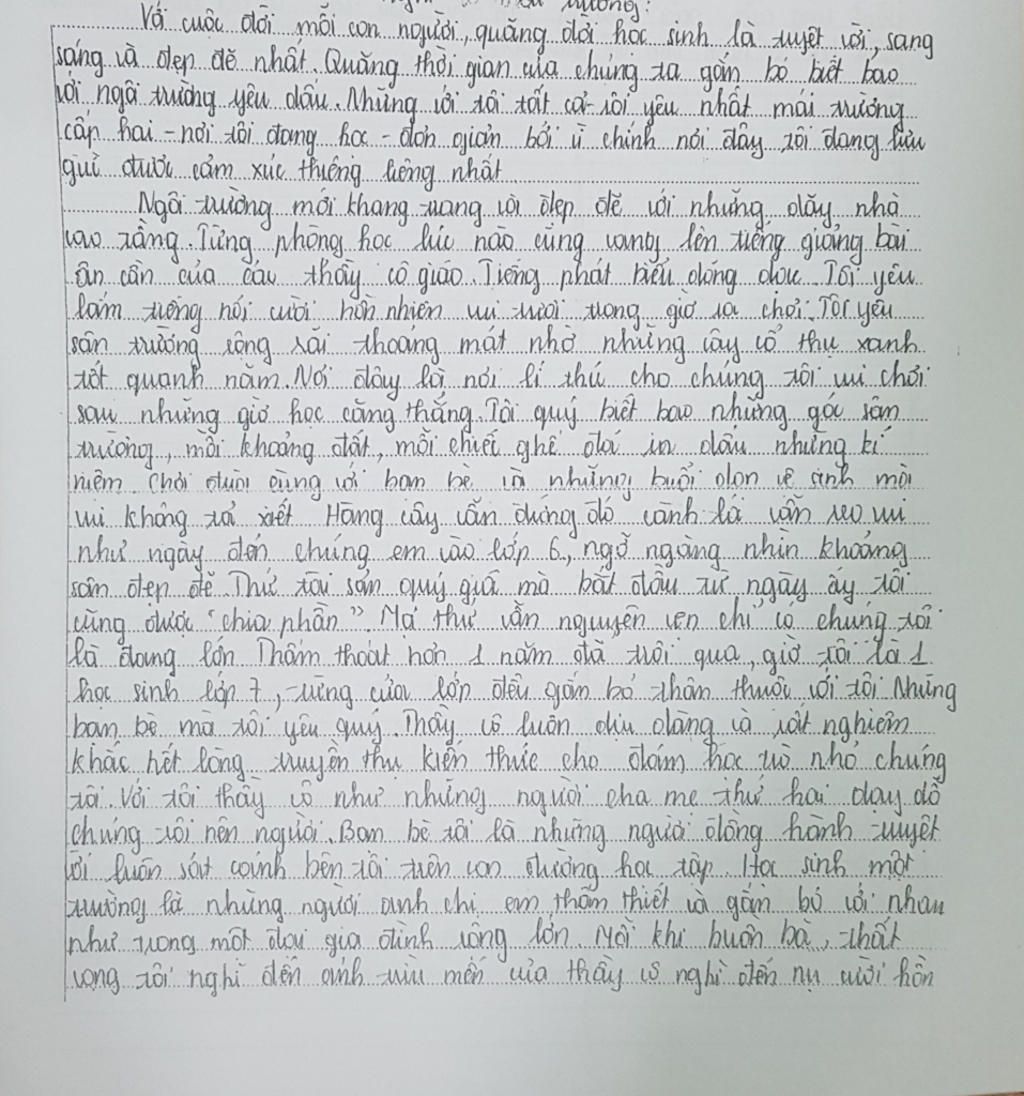 trường:
Với cuộc đời mỗi con người, quãng đời học sinh là tuyệt vời, sang
sáng và đẹp đẽ nhất. Quãng thời gian của chúng ta gắn bó biết bao
với ngôi trường yêu dấu. Nhưng với tôi tất cả tôi yêu nhất mái trường
cấp hai - nơi tôi đang học - đơn giản bởi vì chính nơi đây tôi đang lưu
giữ được cảm xúc thiêng liêng nhất
Ngôi trường mới khang trang với đẹp đẽ với những dãy nhà
cao tầng. Từng phòng học lúc nào cũng vang lên tiếng giảng bài
ân cần của các thầy cô giáo. Tiếng phát biểu dõng dạc. Tôi yêu
lắm tiếng nói cười hồn nhiên vui tươi trong giờ ra chơi. Tôi yêu
sân trường rộng rãi thoáng mát nhờ những cây cổ thụ xanh
tốt quanh năm. Nơi đây là nơi lí thú cho chúng tôi vui chơi
sau những giờ học căng thẳng. Tôi quý biết bao những góc sân
trường, mỗi khoảng đất, mỗi chiếc ghế đá in dấu những kỉ
niệm. Chơi đùa cùng với bạn bè và những buổi dọn vệ sinh mà
vui không tả xiết Hàng cây vẫn đứng đó cành lá vẫn reo vui
như ngày đến chúng em vào lớp 6, ngỡ ngàng nhìn khoảng
sân đẹp đẽ Thứ tài sản quý giá mà bắt đầu từ ngày ấy tôi
cũng được "chia phần". Mọi thứ vẫn nguyên vẹn chỉ có chúng tôi
là đang lớn Thấm thoát hơn 1 năm đã trôi qua, giờ tôi là 1
học sinh lớp 7, từng của lớp đều gắn bó thân thuộc với tôi Những
bạn bè mà tôi yêu quý. Thầy cô luôn dịu dàng và rất nghiêm
khắc hết lòng truyền thụ kiến thức cho đám học trò nhỏ chúng
tôi. Với tôi thầy cô như những người cha mẹ thứ hai dạy dỗ
chúng tôi nên người. Bạn bè tôi là những người đồng hành tuyệt
vời luôn sát cánh bên tôi trên con đường học tập. Học sinh một
trường là những người anh chị em thắm thiết và gắn bó với nhau
như trong một đại gia đình rộng lớn. Mỗi khi buồn bã, thất
vọng tôi nghĩ đến ánh trìu mến của thầy cô nghĩ đến nụ cười hồn